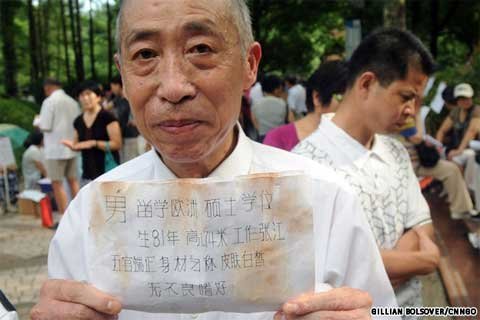 男 留学欧洲 硕士学位
生81年 高1.74米 工作张江
五官端正 身材匀称 皮肤白皙
无不良嗜好
GILLIAN BOLSOVER/CNNGO